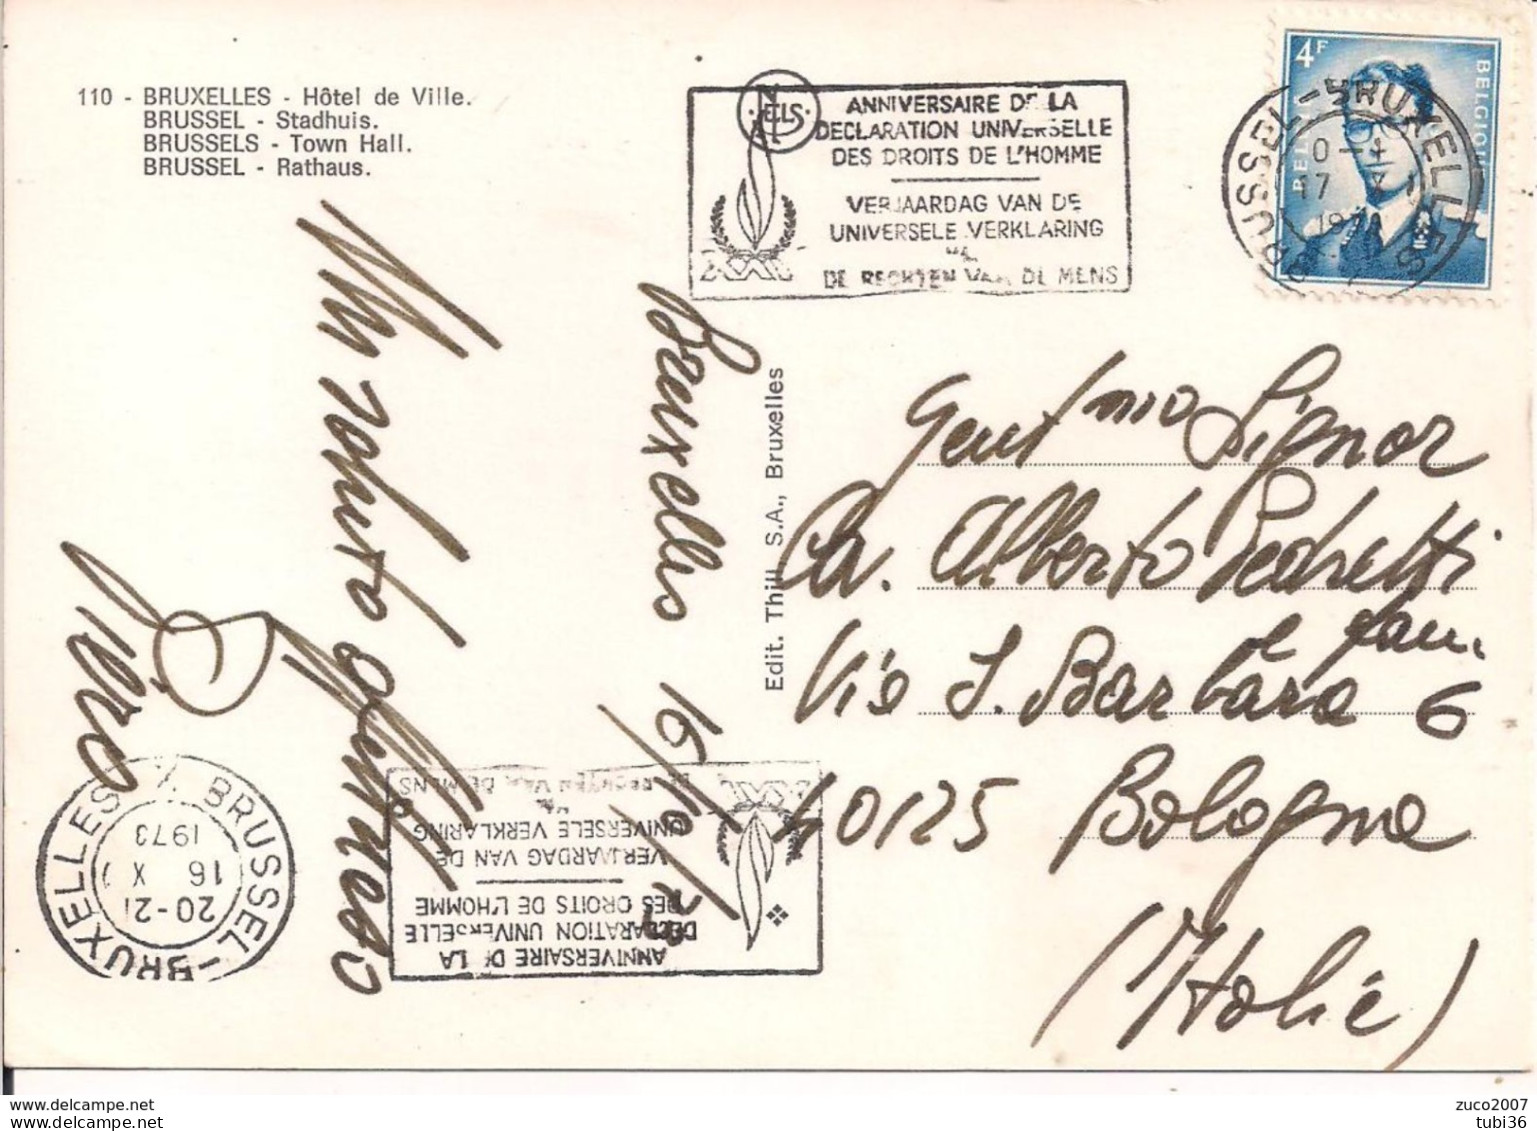 110 - BRUXELLES - Hôtel de Ville.
BRUSSEL - Stadhuis.
BRUSSELS - Town Hall.
BRUSSEL - Rathaus.
NELS
ANNIVERSAIRE DE LA
DECLARATION UNIVERSELLE
DES DROITS DE L'HOMME
VERJAARDAG VAN DE
UNIVERSELE VERKLARING
VAN
DE RECHTEN VAN DE MENS
XXV
4F
BELGIE BELGIQUE
BRUSSEL - BRUXELLES
17 X
Bruxelles 16/10/73
Un saluto affettuoso
Piero
Edit. Thill S.A., Bruxelles
Gent.mo Signor
Alberto Pedretti
e fam.
Via S. Barbara 6
40125 Bologna
(Italie)
BRUXELLES 1 BRUSSEL
20-21
16 X
1973
BRUSSEL-BRUXELLES
ANNIVERSAIRE DE LA
DECLARATION UNIVERSELLE
DES DROITS DE L'HOMME
VERJAARDAG VAN DE
UNIVERSELE VERKLARING
VAN
DE RECHTEN VAN DE MENS
XXV
www.delcampe.net
www.delcampe.net
zuco2007
tubi36